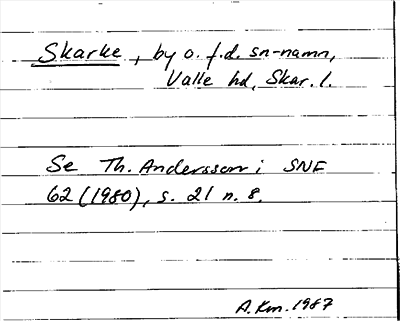 Skarke, by o. f.d. sn-namn,
Valle hd, Skar. l.
Se Th. Andersson i SNF
62 (1980), s. 21 n. 8.
A. Km. 1987